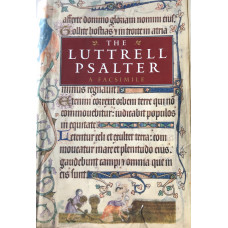 domino gloriam nomini eius
Tollite hostias et introite in atria
THE
LUTTRELL
PSALTER
A FACSIMILE
minus regnauit
Etenim correxit orbem terre qui non
commouebitur: iudicabit populos in
equitate
Letentur celi et exultet terra: com
moueatur mare et plenitudo eius:
gaudebunt campi et omnia que in
eis sunt